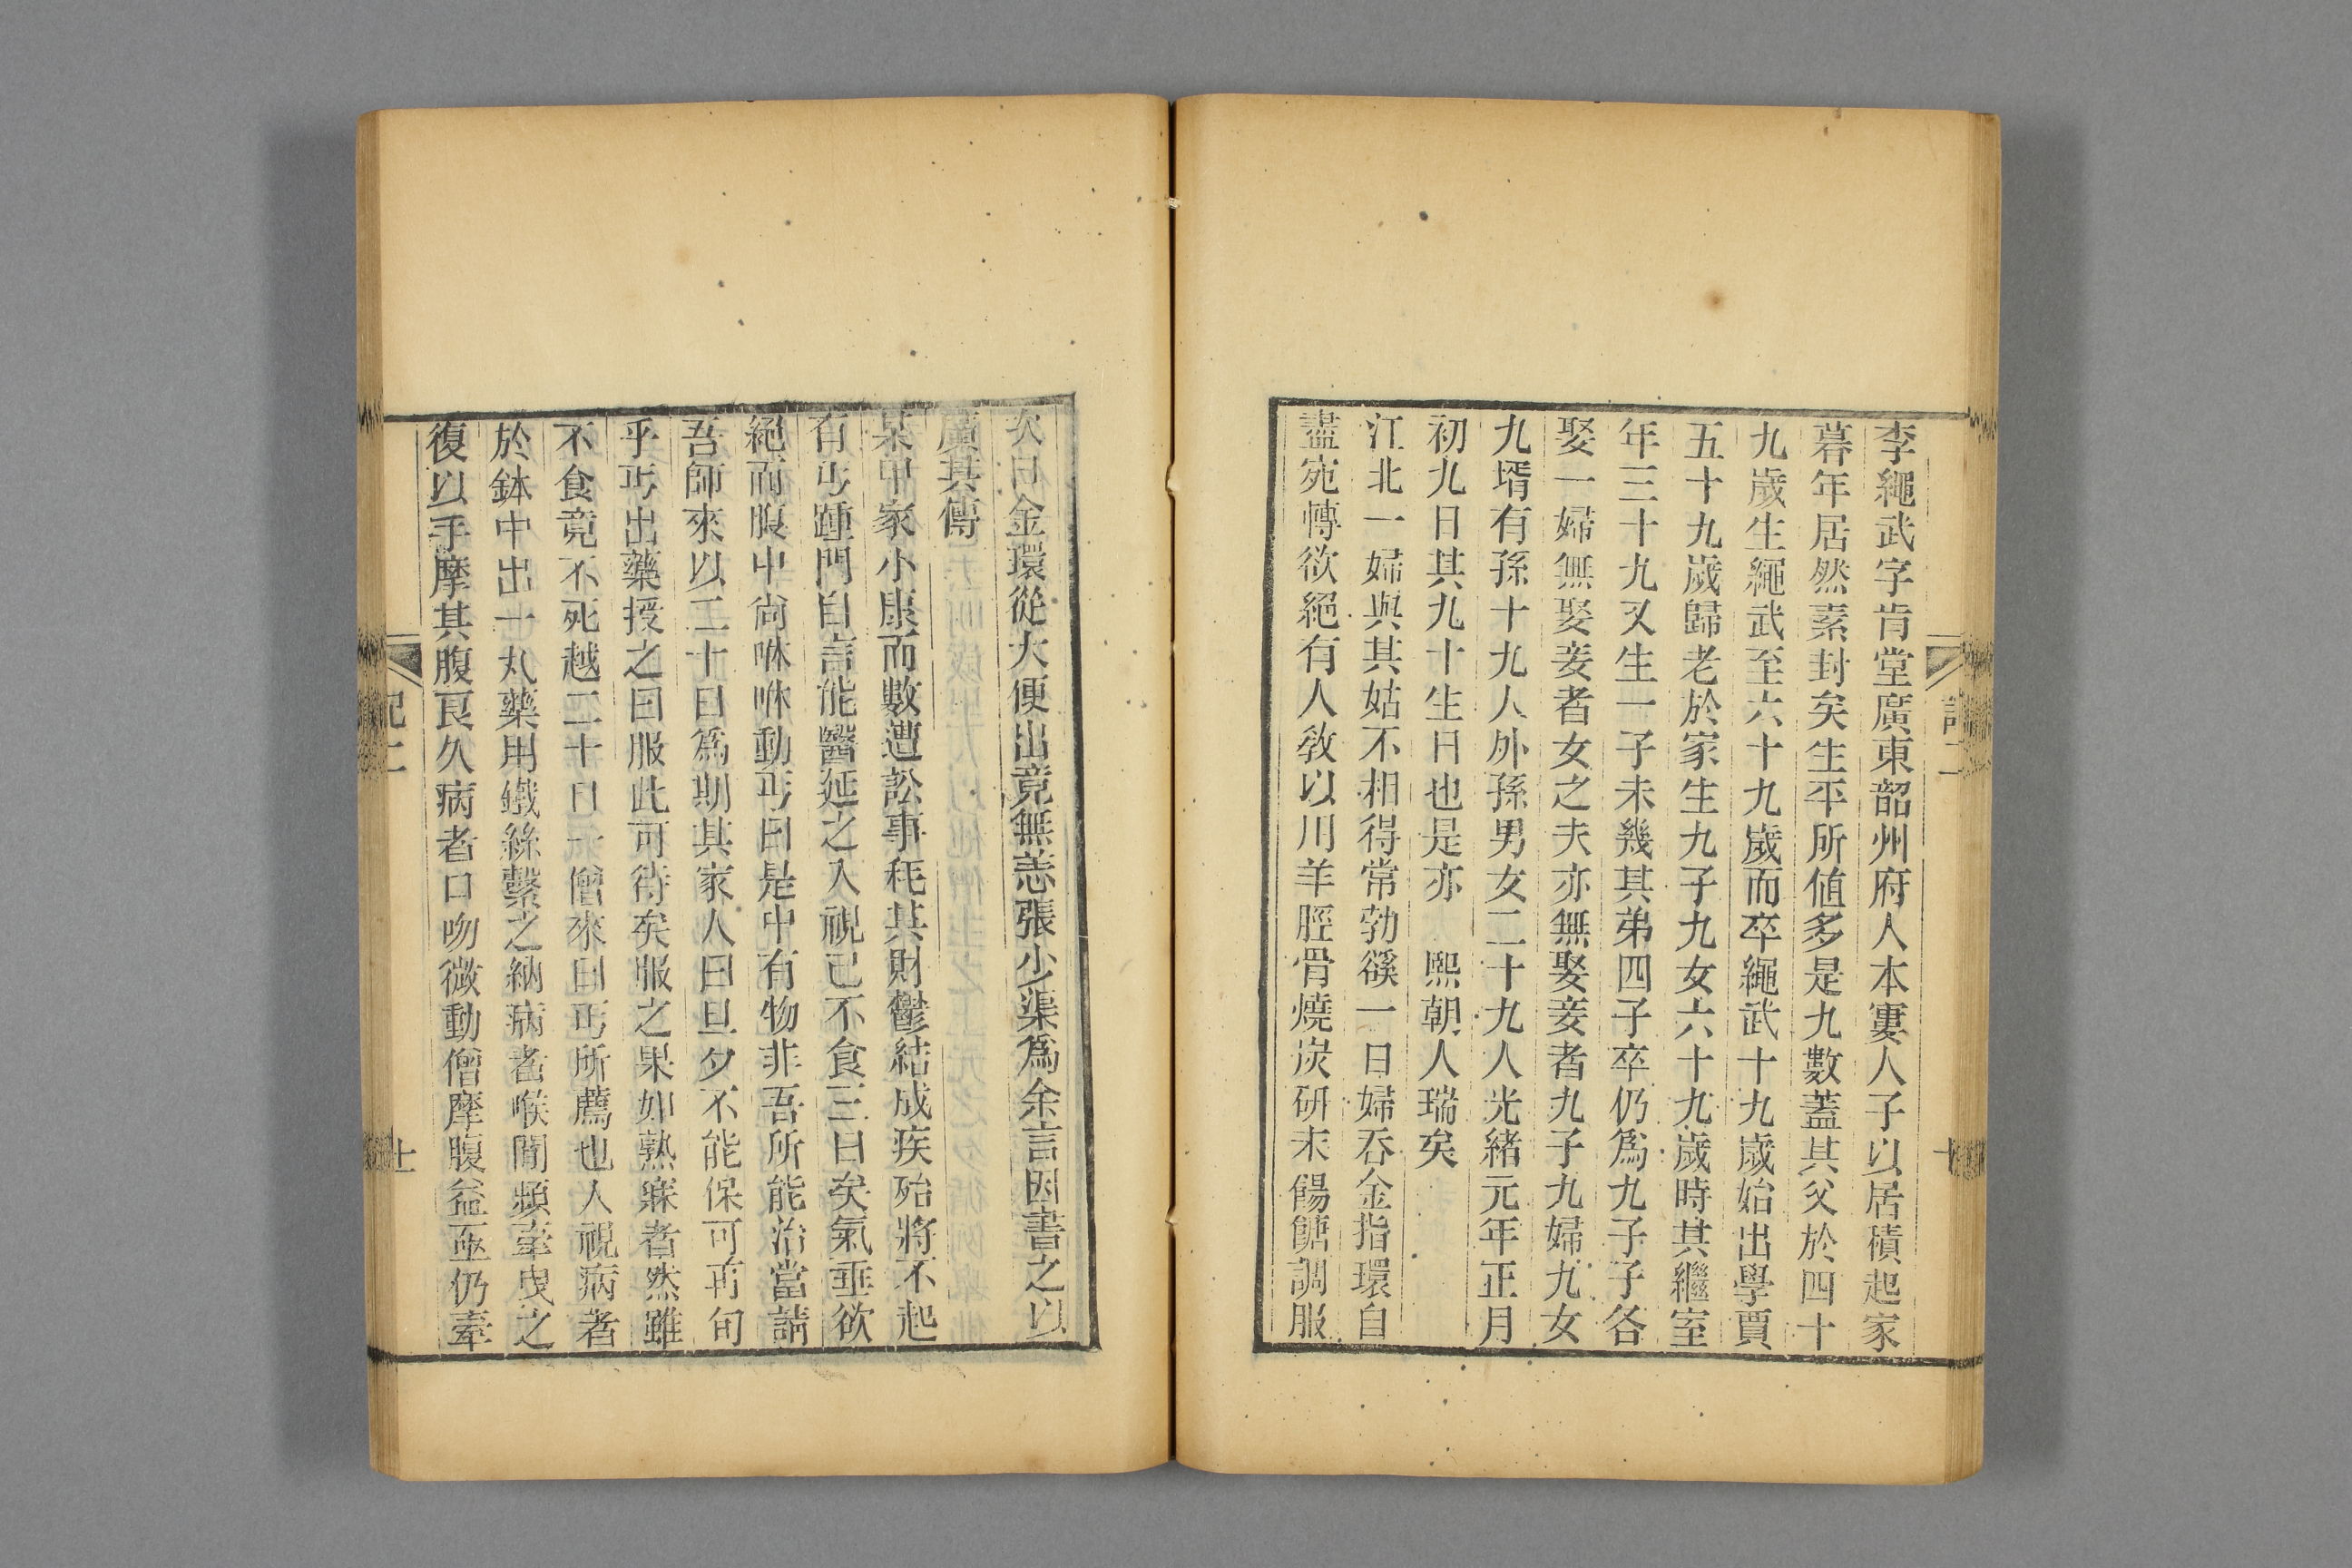 李繩武字肯堂廣東韶州府人本寠人子以居積起家
暮年居然素封矣生平所值多是九數蓋其父於四十
九歲生繩武至六十九歲而卒繩武十九歲始出學賈
五十九歲歸老於家生九子九女六十九歲時其繼室
年三十九又生一子未幾其弟四子卒仍爲九子子各
娶一婦無娶妾者女之夫亦無娶妾者九子九婦九女
九壻有孫十九人外孫男女二十九人光緒元年正月
初九日其九十生日也是亦　熙朝人瑞矣
江北一婦與其姑不相得常勃豀一日婦吞金指環自
盡宛轉欲絕有人敎以用羊脛骨燒炭研末餳餹調服
次日金環從大便出竟無恙張少渠爲余言因書之以
廣其傳
某甲家小康而數遭訟事耗其財鬱結成疾殆將不起
有丐踵門自言能醫延之入視已不食三日矣氣垂欲
絕而腹中尙咻咻動丐曰是中有物非吾所能治當請
吾師來以二十日爲期其家人曰旦夕不能保可再旬
乎丐出藥授之曰服此可待矣服之果如熟寐者然雖
不食竟不死越二十日一僧來曰丐所薦也人視病者
於鉢中出一丸藥用鐵絲繫之納病者喉閒頻牽曳之
復以手摩其腹良久病者口吻微動僧摩腹益亟仍牽
記二
十
記二
十一